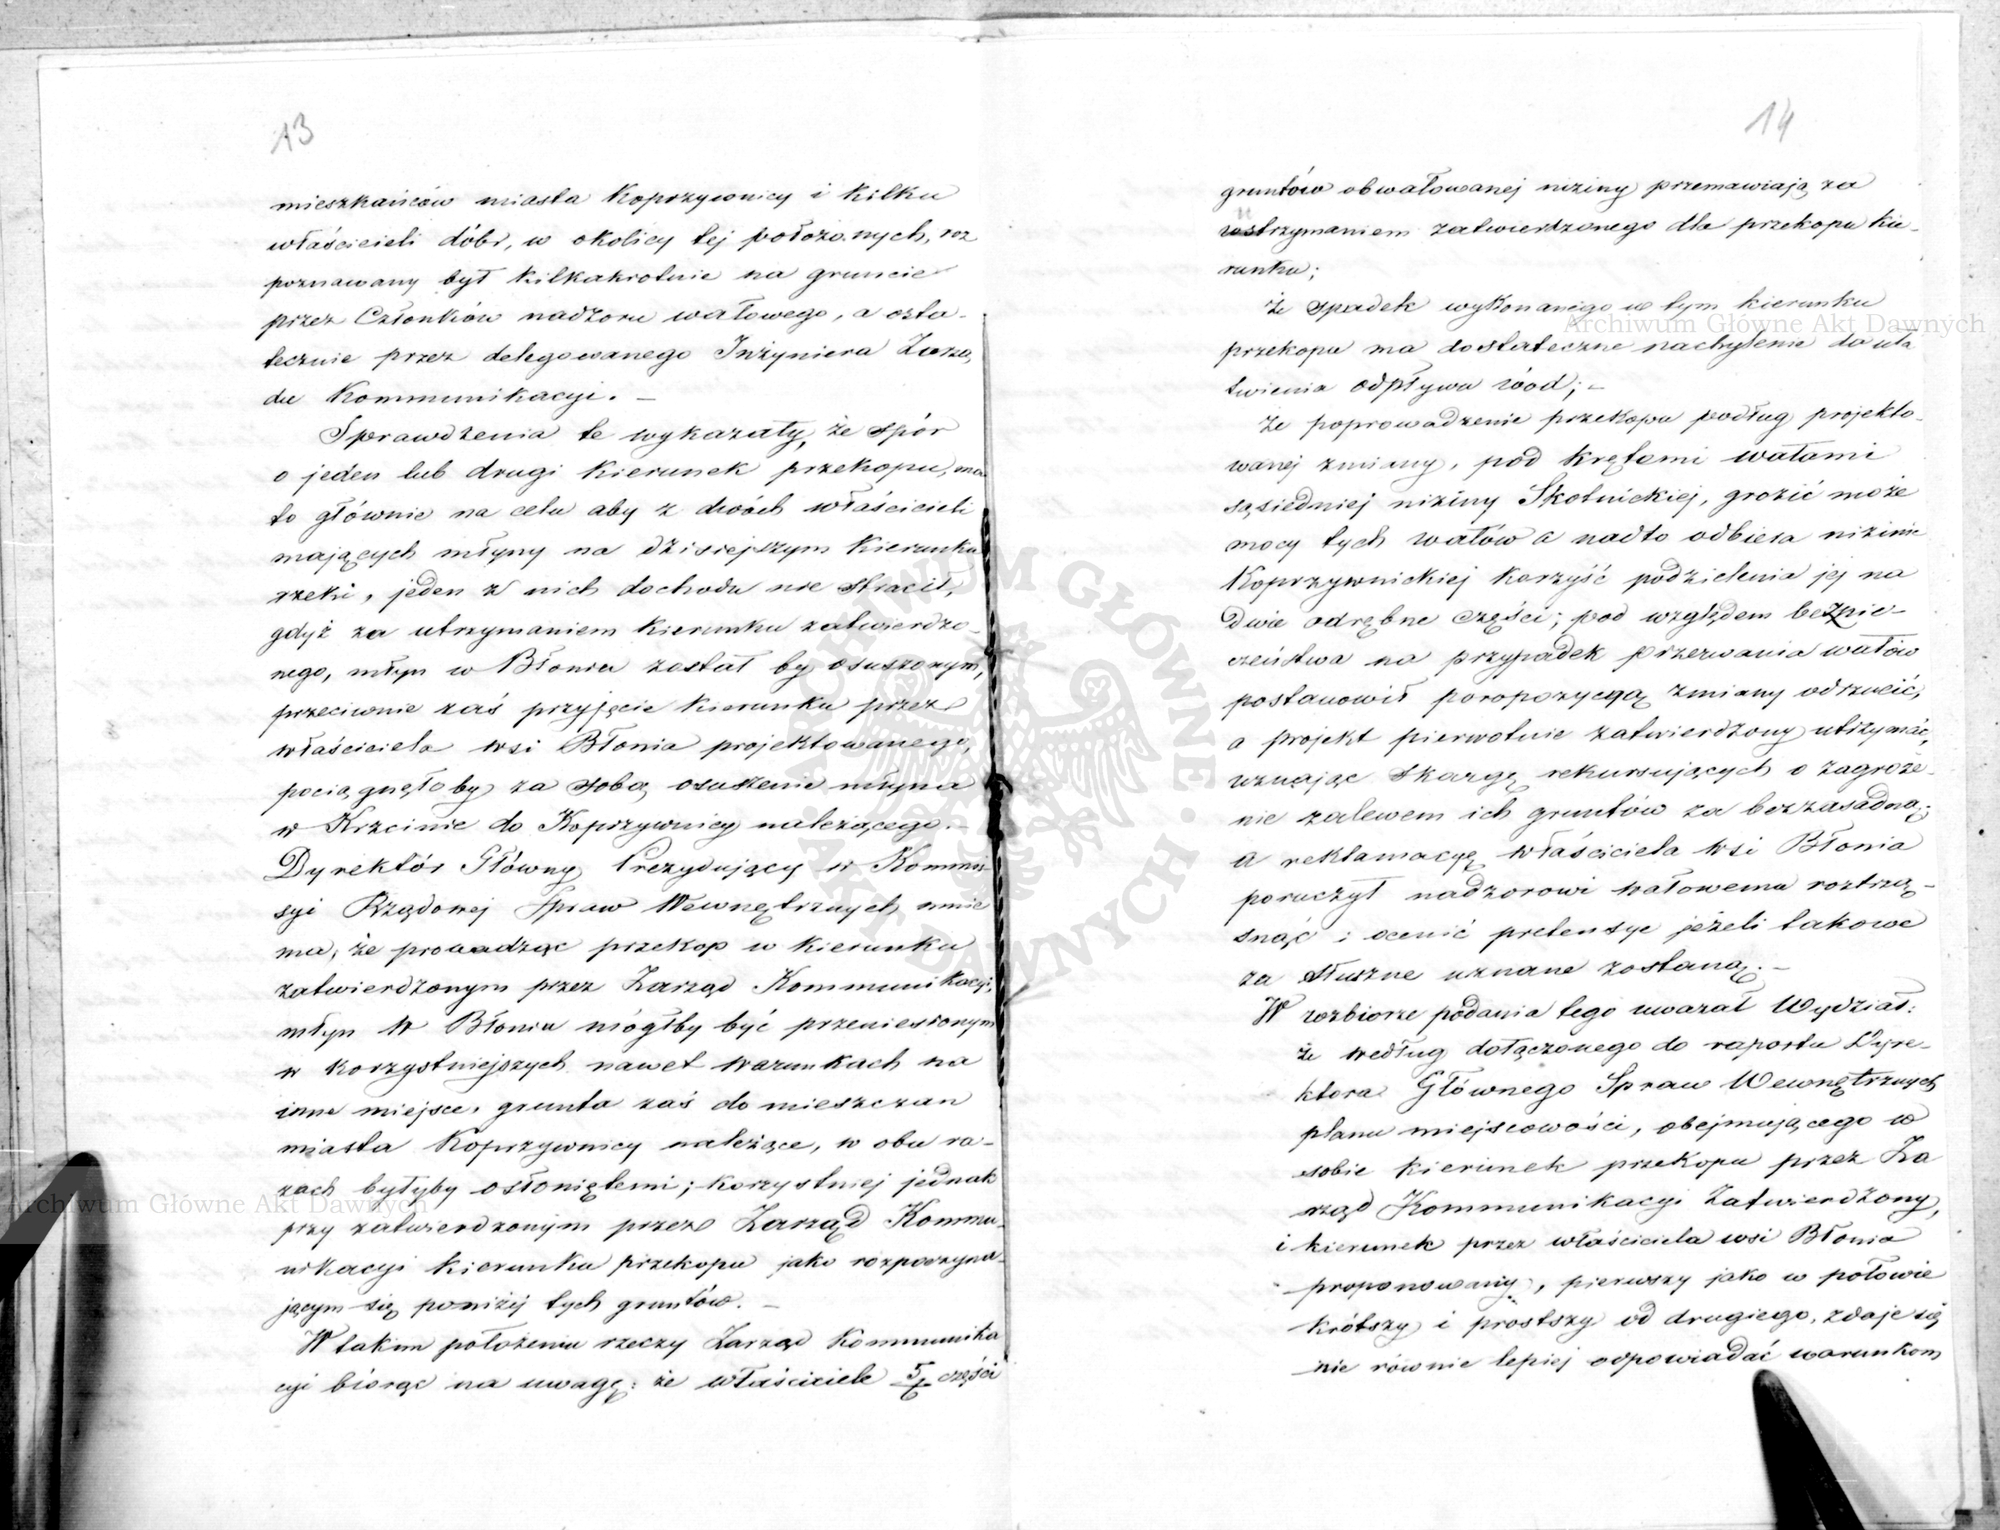 13
mieszkańców miasta Koprzywnicy i kilku
właścicieli dóbr, w okolicy tej położonych, roz
poznawany był kilkakrotnie na gruncie
przez Członków nadzoru wałowego, a osta-
tecznie przez delegowanego Inżyniera Zarzą
du Kommunikacyi. —
Sprawdzenia te wykazały, że spór
o jeden lub drugi kierunek przekopu, ma
to głównie na celu aby z dwóch właścicieli
mających młyny na dzisiejszym kierunku
rzeki, jeden z nich dochodu nie stracił,
gdyż za utrzymaniem kierunku zatwierdzo-
nego, młyn w Błoniu został by osuszonym,
przeciwnie zaś przyjęcie kierunku przez
właściciela wsi Błonia projektowanego,
pociągnęło by za sobą osuszenie młyna
w Krzcinie do Koprzywnicy należącego. —
Dyrektór Główny Prezydujący w Kommi
syi Rządowej Spraw Wewnętrznych mnie
ma, że prowadząc przekop w kierunku
zatwierdzonym przez Zarząd Kommunikacyi,
młyn w Błoniu mógłby być przeniesionym
w korzystniejszych nawet warunkach na
inne miejsce, grunta zaś do mieszczan
miasta Koprzywnicy należące, w obu ra-
zach byłyby osłoniętemi; korzystniej jednak
przy zatwierdzonym przez Zarząd Kommu-
nikacyi kierunku przekopu jako rozpoczyna-
jącym się poniżej tych gruntów. —
W takim położeniu rzeczy Zarząd Kommunika
cyi biorąc na uwagę: że właściciele części
14
gruntów obwałowanej niziny przemawiają za
utrzymaniem zatwierdzonego dla przekopu kie-
runku;
że spadek wykonanego w tym kierunku
przekopu ma dostateczne nachylenie do uła
twienia odpływu wód; —
że poprowadzenie przekopu podług projekto-
wanej zmiany, pod krętemi wałami
sąsiedniej niziny Skotnickiej, grozić może
mocy tych wałów a nadto odbiera nizinie
Koprzywnickiej korzyść podzielenia jej na
Dwie odrębne części; pod względem bezpie-
czeństwa na przypadek przerwania wałów
postanowił poropozycyą zmiany odrzucić,
a projekt pierwotnie zatwierdzony utrzymać,
uznając skargę rekursujących o zagroże-
nie zalewem ich gruntów za bezzasadną;
a reklamacyę właściciela wsi Błonia
poruczył nadzorowi wałowemu roztrzą-
snąć i ocenić pretensye jeżeli takowe
za słuszne uznane zostaną. —
W rozbiorze podania tego uważał Wydział:
że według dołączonego do raportu Dyre-
ktora Głównego Spraw Wewnętrznych
planu miejscowości, obejmującego w
sobie kierunek przekopu przez Za
rząd Kommunikacyi Zatwierdzony,
i kierunek przez właściciela wsi Błonia
proponowany, pierwszy jako w połowie
krótszy i prostszy od drugiego, zdaje się
nie równie lepiej odpowiadać warunkom
Archiwum Główne Akt Dawnych
Archiwum Główne Akt Dawnych
ARCHIWUM GŁÓWNE · AKT DAWNYCH ·